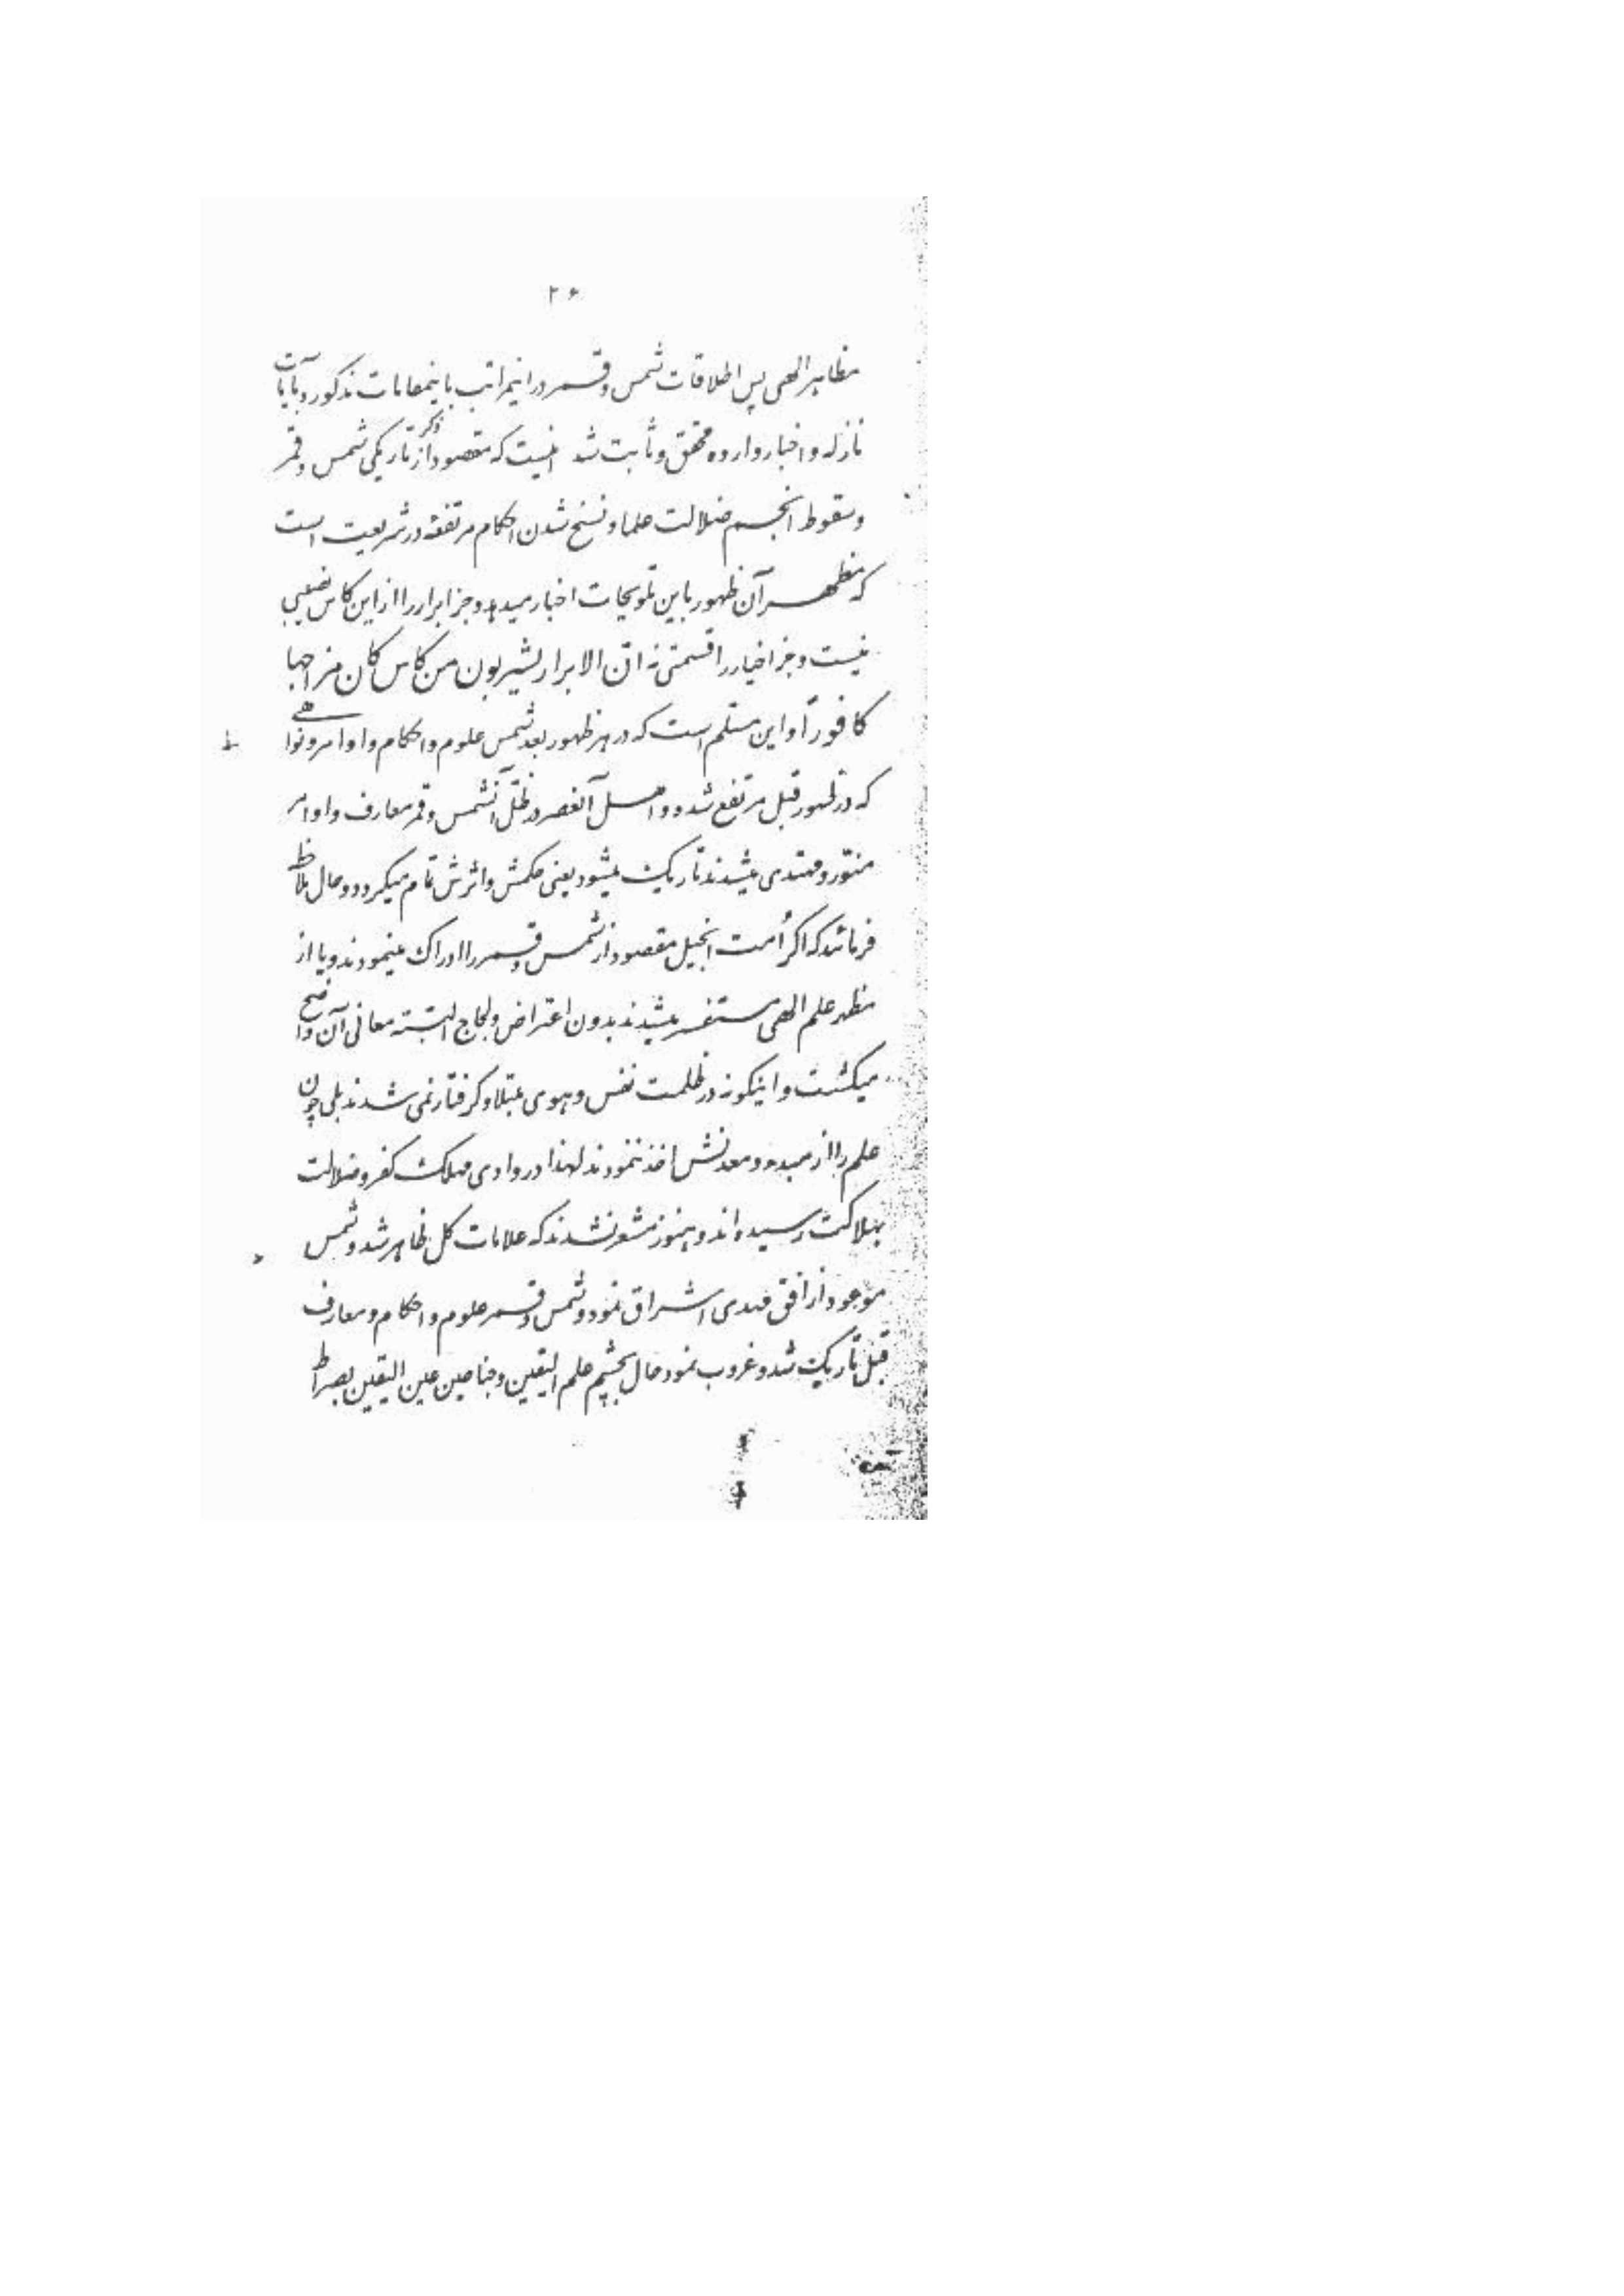 ۲۶
مظاهر الهی پس اطلاقات شمس و قمر در اینمراتب باینمقامات مذکور و بآیات
نازله و اخبار وارده محقق و ثابت شد اینست که مقصود از ذکر تاریکی شمس و قمر
و سقوط انجم ضلالت علما و نسخ شدن احکام مرتفعه در شریعت است
که مظهر آن ظهور باین تلویحات اخبار میدهد و جز ابرار را از این کاس نصیبی
نیست و جز اخیار را قسمتی نه انّ الابرار یشربون من کاس کان مزاجها
کافوراً و این مسلّم است که در هر ظهور بعد شمس علوم و احکام و اوامر و نواهی
که در ظهور قبل مرتفع شده و اهل آنعصر در ظلّ آنشمس و قمر معارف و اوامر
منوّر و مهتدی میشدند تاریک میشود یعنی حکمش و اثرش تمام میگردد و حال ملاحظه
فرمائید که اگر اُمت انجیل مقصود از شمس و قمر را ادراک مینمودند و یا از
مظهر علم الهی مستفسر میشدند بدون اعتراض و لجاج البتّه معانی آن واضح
میگشت و اینگونه در ظلمت نفس و هوی مبتلا و گرفتار نمی شدند بلی چون
علم را از مبدء و معدنش اخذ ننمودند لهذا در وادی مهلک کفر و ضلالت
بهلاکت رسیده اند و هنوز مشعر نشدند که علامات کل ظاهر شد و شمس
موعود از افق هدی اشراق نمود و شمس و قمر علوم و احکام و معارف
قبل تاریک شد و غروب نمود حال بچشم علم الیقین و جناحین عین الیقین بصراط